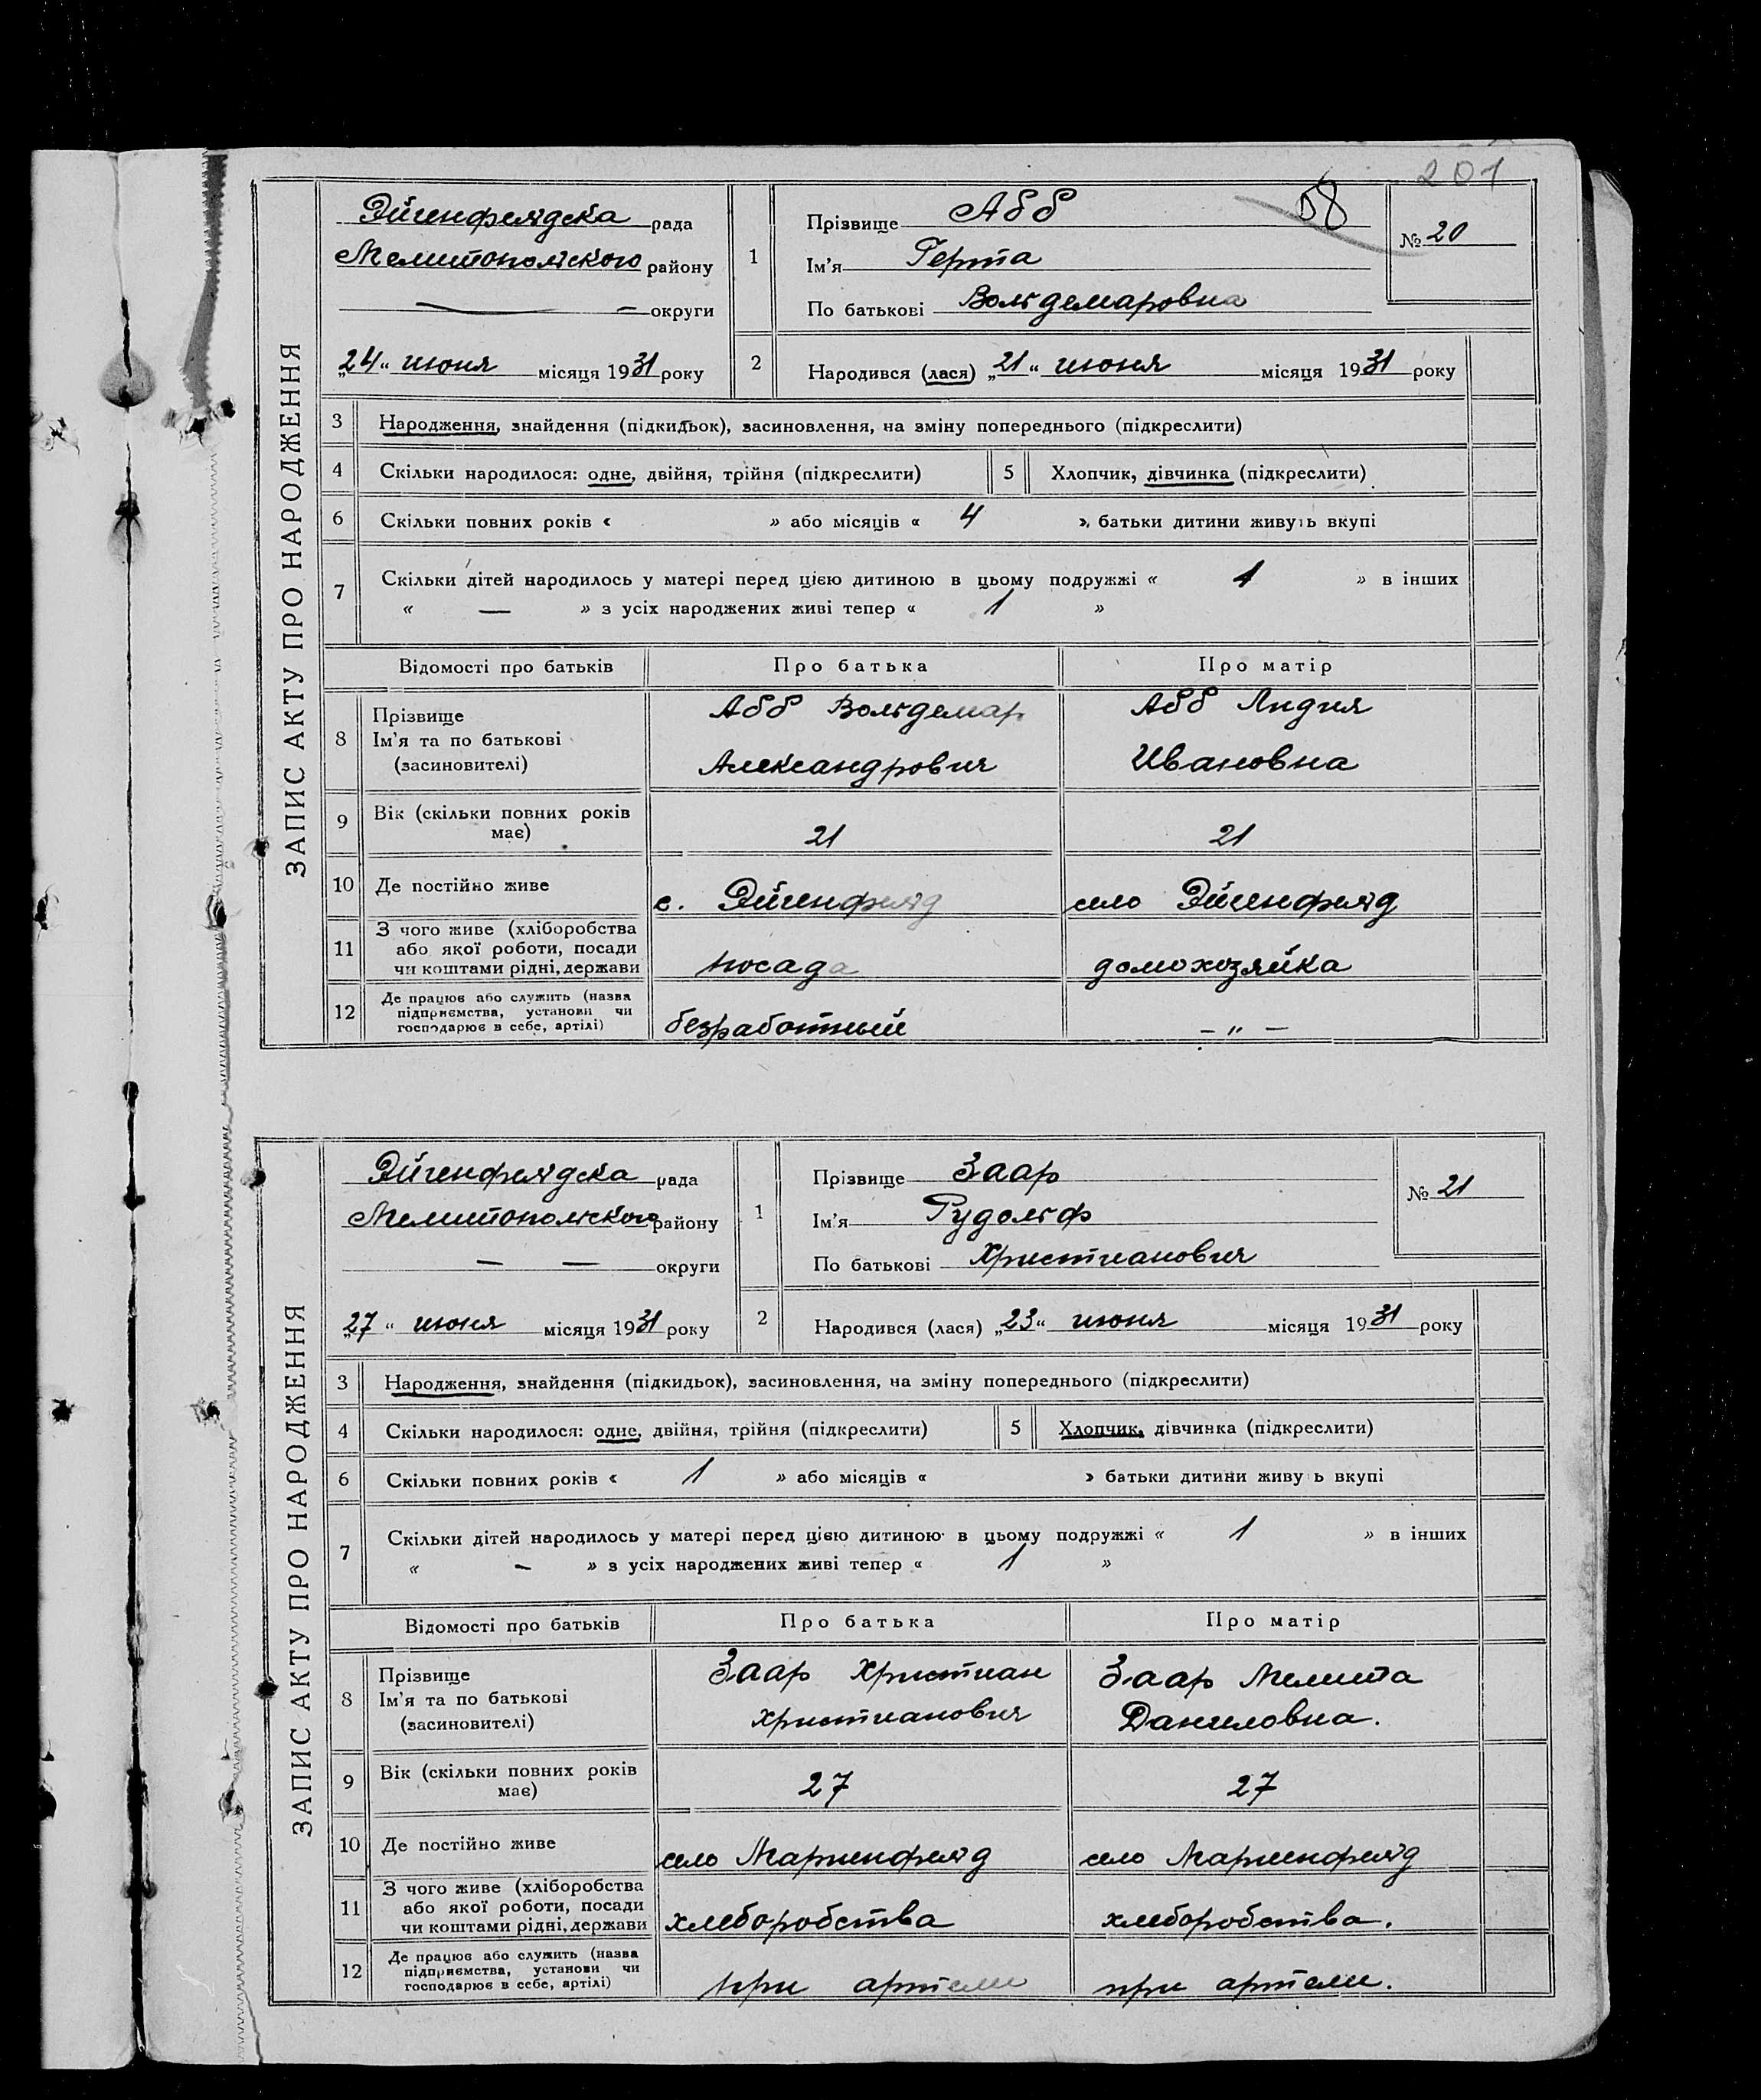 201
58
ЗАПИС АКТУ ПРО НАРОДЖЕННЯ
Эйгенфельдска рада
Мелитопольского району
— — округи
„24“ июня місяця 1931 року
1
Прізвище Абб
Ім'я Герта
По батькові Вольдемаровна
№ 20
2
Народився (лася) „21“ июня місяця 1931 року
3 Народження, знайдення (підкидьок), засиновлення, на зміну попереднього (підкреслити)
4 Скільки народилося: одне, двійня, трійня (підкреслити) 5 Хлопчик, дівчинка (підкреслити)
6 Скільки повних років « » або місяців « 4 », батьки дитини живуть вкупі
7 Скільки дітей народилось у матері перед цією дитиною в цьому подружжі « 1 » в інших
« — » з усіх народжених живі тепер « 1 »
Відомості про батьків Про батька Про матір
8 Прізвище
Ім'я та по батькові
(засиновителі)
Абб Вольдемар
Александрович
Абб Лидия
Ивановна
9 Вік (скільки повних років
має)
21 21
10 Де постійно живе с. Эйгенфельд село Эйгенфельд
11 З чого живе (хліборобства
або якої роботи, посади
чи коштами рідні, держави
посада домохозяйка
12 Де працює або служить (назва
підприємства, установи чи
господарює в себе, артілі)
безработный – „ –
ЗАПИС АКТУ ПРО НАРОДЖЕННЯ
Эйгенфельдска рада
Мелитопольского району
— — округи
„27“ июня місяця 1931 року
1
Прізвище Заар
Ім'я Рудольф
По батькові Христианович
№ 21
2
Народився (лася) „23“ июня місяця 1931 року
3 Народження, знайдення (підкидьок), засиновлення, на зміну попереднього (підкреслити)
4 Скільки народилося: одне, двійня, трійня (підкреслити) 5 Хлопчик, дівчинка (підкреслити)
6 Скільки повних років « 1 » або місяців « » батьки дитини живу ь вкупі
7 Скільки дітей народилось у матері перед цією дитиною в цьому подружжі « 1 » в інших
« – » з усіх народжених живі тепер « 1 »
Відомості про батьків Про батька Про матір
8 Прізвище
Ім'я та по батькові
(засиновителі)
Заар Христиан
Христианович
Заар Мелита
Даниловна.
9 Вік (скільки повних років
має)
27 27
10 Де постійно живе село Мариенфельд село Мариенфельд
11 З чого живе (хліборобства
або якої роботи, посади
чи коштами рідні, держави
хлеборобства хлеборобства.
12 Де працює або служить (назва
підприємства, установи чи
господарює в себе, артілі)
при артели при артели.